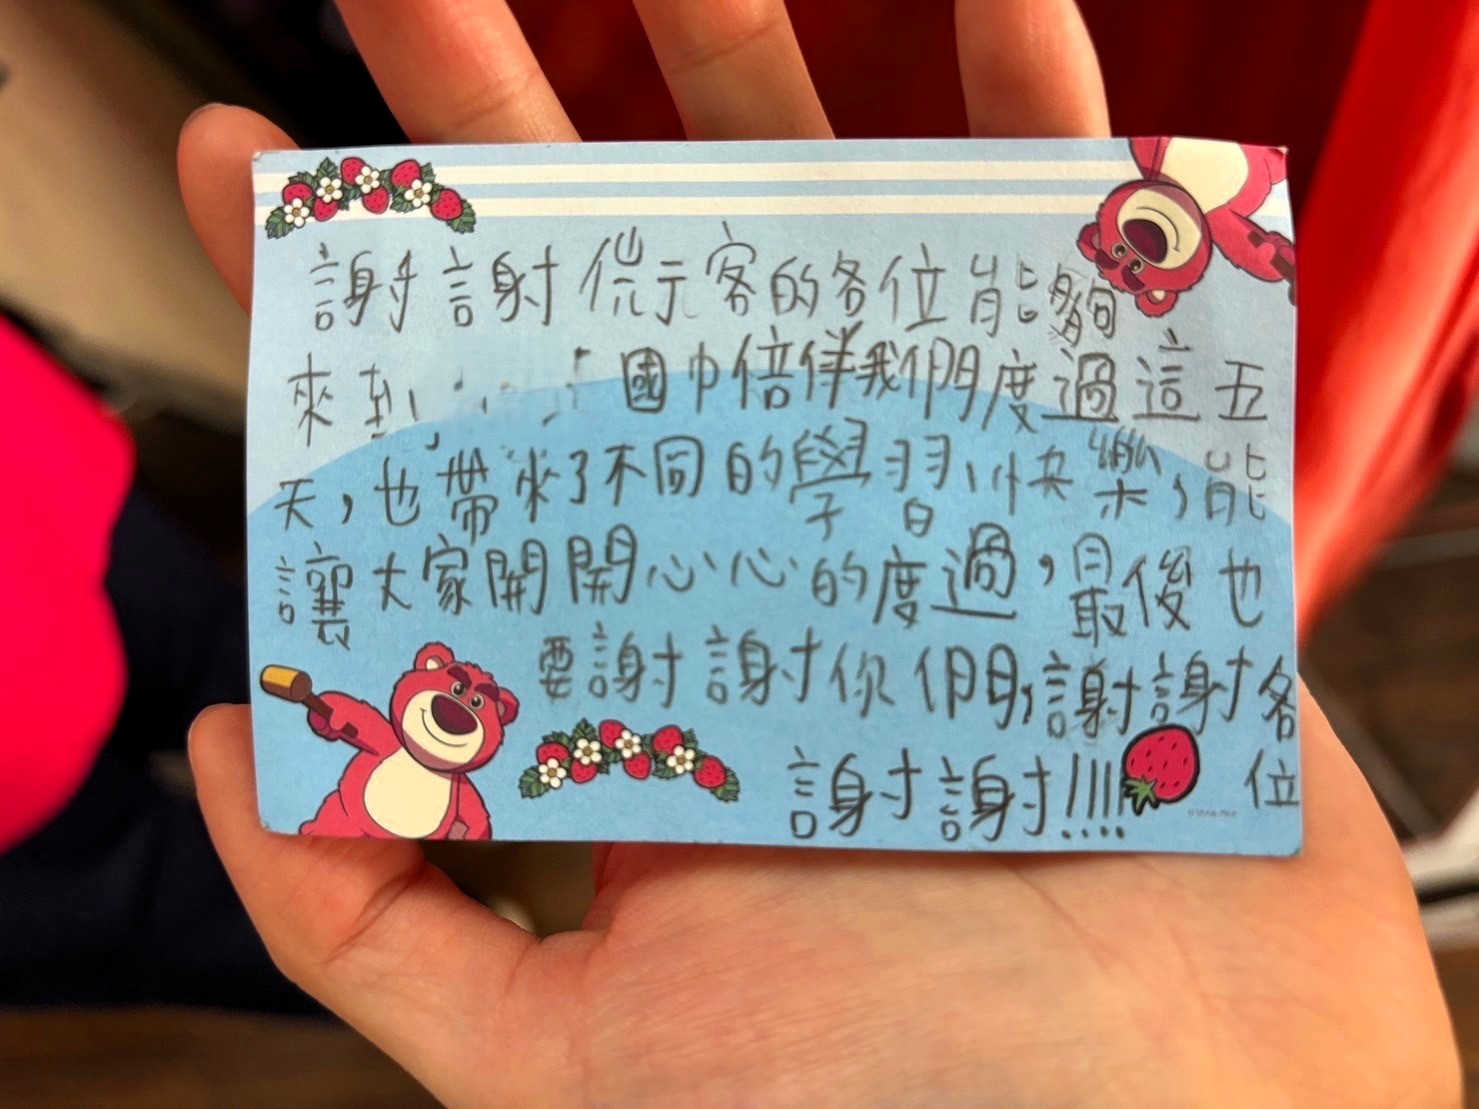 謝謝侊示客的各位能夠
來到國巾倍伴我們度過這五
天,也帶來了不同的學習、快樂,能
讓大家開開心心的度過,最後也
要謝謝你們,謝謝各位
謝謝!!!!